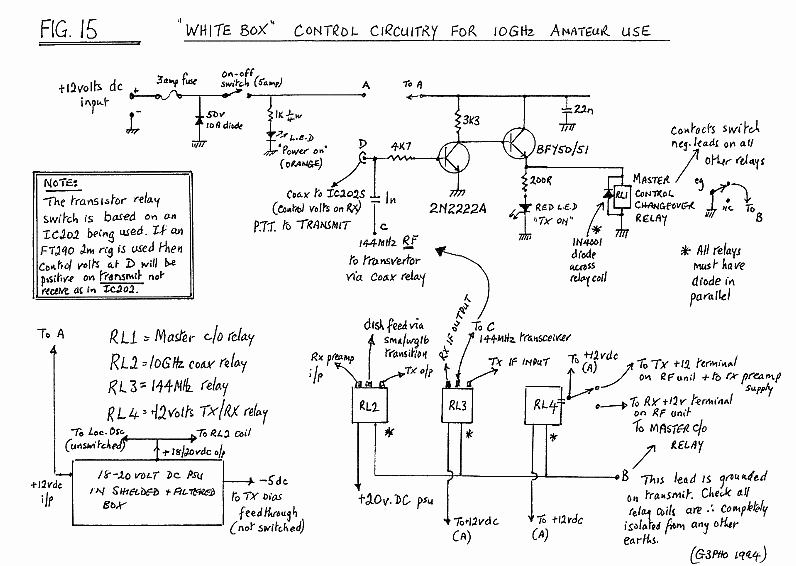 FIG. 15
"WHITE BOX" CONTROL CIRCUITRY FOR 10GHz AMATEUR USE
+12volts dc
input
+
-
3amp fuse
on-off
switch (5amp)
50v
10A diode
1K ¼w
L.E.D
"Power on"
(ORANGE)
A
To A
3K3
22n
BFY50/51
D
4K7
2N2222A
1n
C
Coax to IC202S
(Control volts on RX)
P.T.T. to TRANSMIT
144MHz RF
to transvertor
via coax relay
200R
RED L.E.D
"TX ON"
RL1
MASTER
CONTROL
CHANGEOVER
RELAY
*
1N4001
diode
across
relay coil
Contacts switch
neg. leads on all
other relays
eg
nc
To
B
* All relays
must have
diode in
parallel
NOTE:
The transistor relay
switch is based on an
IC202 being used. If an
FT290 2m rig is used then
control volts at D will be
positive on transmit not
receive as in IC202.
To A
RL1 = Master c/o relay
RL2 = 10GHz coax relay
RL3 = 144MHz relay
RL4 = +12volts TX/RX relay
To Loc. Osc
(unswitched)
To RL2 coil
+18/20vdc o/p
+12vdc
i/p
18-20 VOLT DC PSU
IN SHIELDED + FILTERED
BOX
-5dc
to TX bias
feedthrough
(not switched)
Rx preamp
i/p
dish feed via
sma/wg16
transition
TX o/p
RL2
*
+20v. DC psu
RX IF OUTPUT
To C
144MHz transceiver
TX IF INPUT
RL3
*
To +12vdc
(A)
To +12vdc
(A)
RL4
*
To +12vdc
(A)
To TX +12 terminal
on RF unit + to rx preamp
supply
To RX +12v terminal
on RF unit
To MASTER c/o
RELAY
B
This lead is grounded
on transmit. Check all
relay coils are ∴ completely
isolated from any other
earths.
(G3PHO 1994)